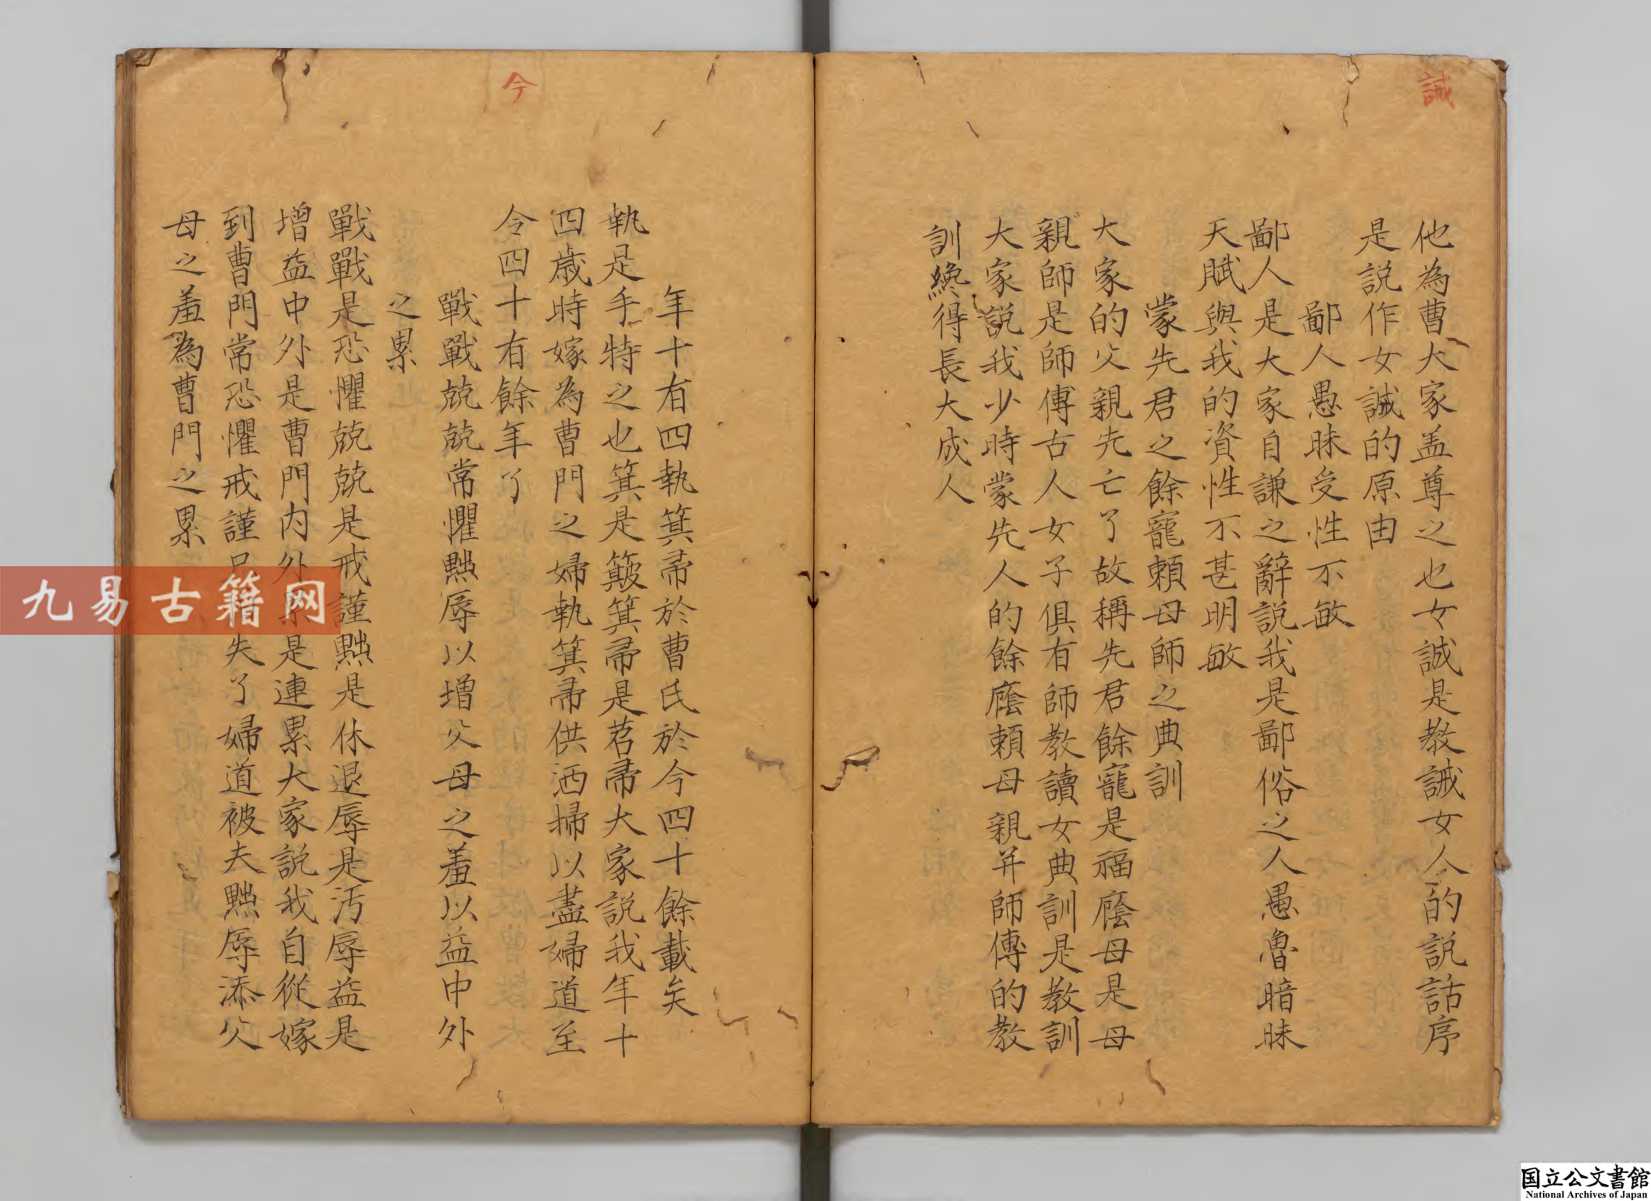 誡
他為曹大家盖尊之也女誡是教誡女人的説話序
是説作女誡的原由
鄙人愚昧受性不敏
鄙人是大家自謙之辭説我是鄙俗之人愚魯暗昧
天賦與我的資性不甚明敏
蒙先君之餘寵頼母師之典訓
大家的父親先亡了故稱先君餘寵是福廕母是母
親師是師傅古人女子俱有師教讀女典訓是教訓
大家説我少時蒙先人的餘廕頼母親并師傅的教
訓纔得長大成人
今
年十有四執箕帚於曹氏於今四十餘載矣
執是手特之也箕是簸箕帚是苕帚大家説我年十
四歲時嫁為曹門之婦執箕帚供洒掃以盡婦道至
令四十有餘年了
戰戰兢兢常懼黜辱以增父母之羞以益中外
之累
戰戰是恐懼兢兢是戒謹黜是休退辱是汚辱益是
增益中外是曹門内外累是連累大家説我自從嫁
到曹門常恐懼戒謹失了婦道被夫黜辱添父
母之羞為曹門之累
九易古籍网
国立公文書館
National Archives of Japan